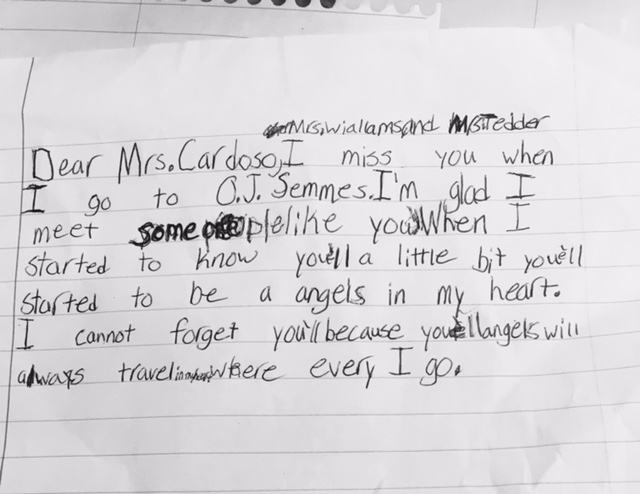 Mrs.wiallamsand MsTedder
Dear Mrs.Cardoso,I miss you when
I go to O.J. Semmes.I'm glad I
meet some people like you.When I
started to know you'll a little bit you'll
started to be a angels in my heart.
I cannot forget you'll because you'll angels will
always travel in my heart where every I go.